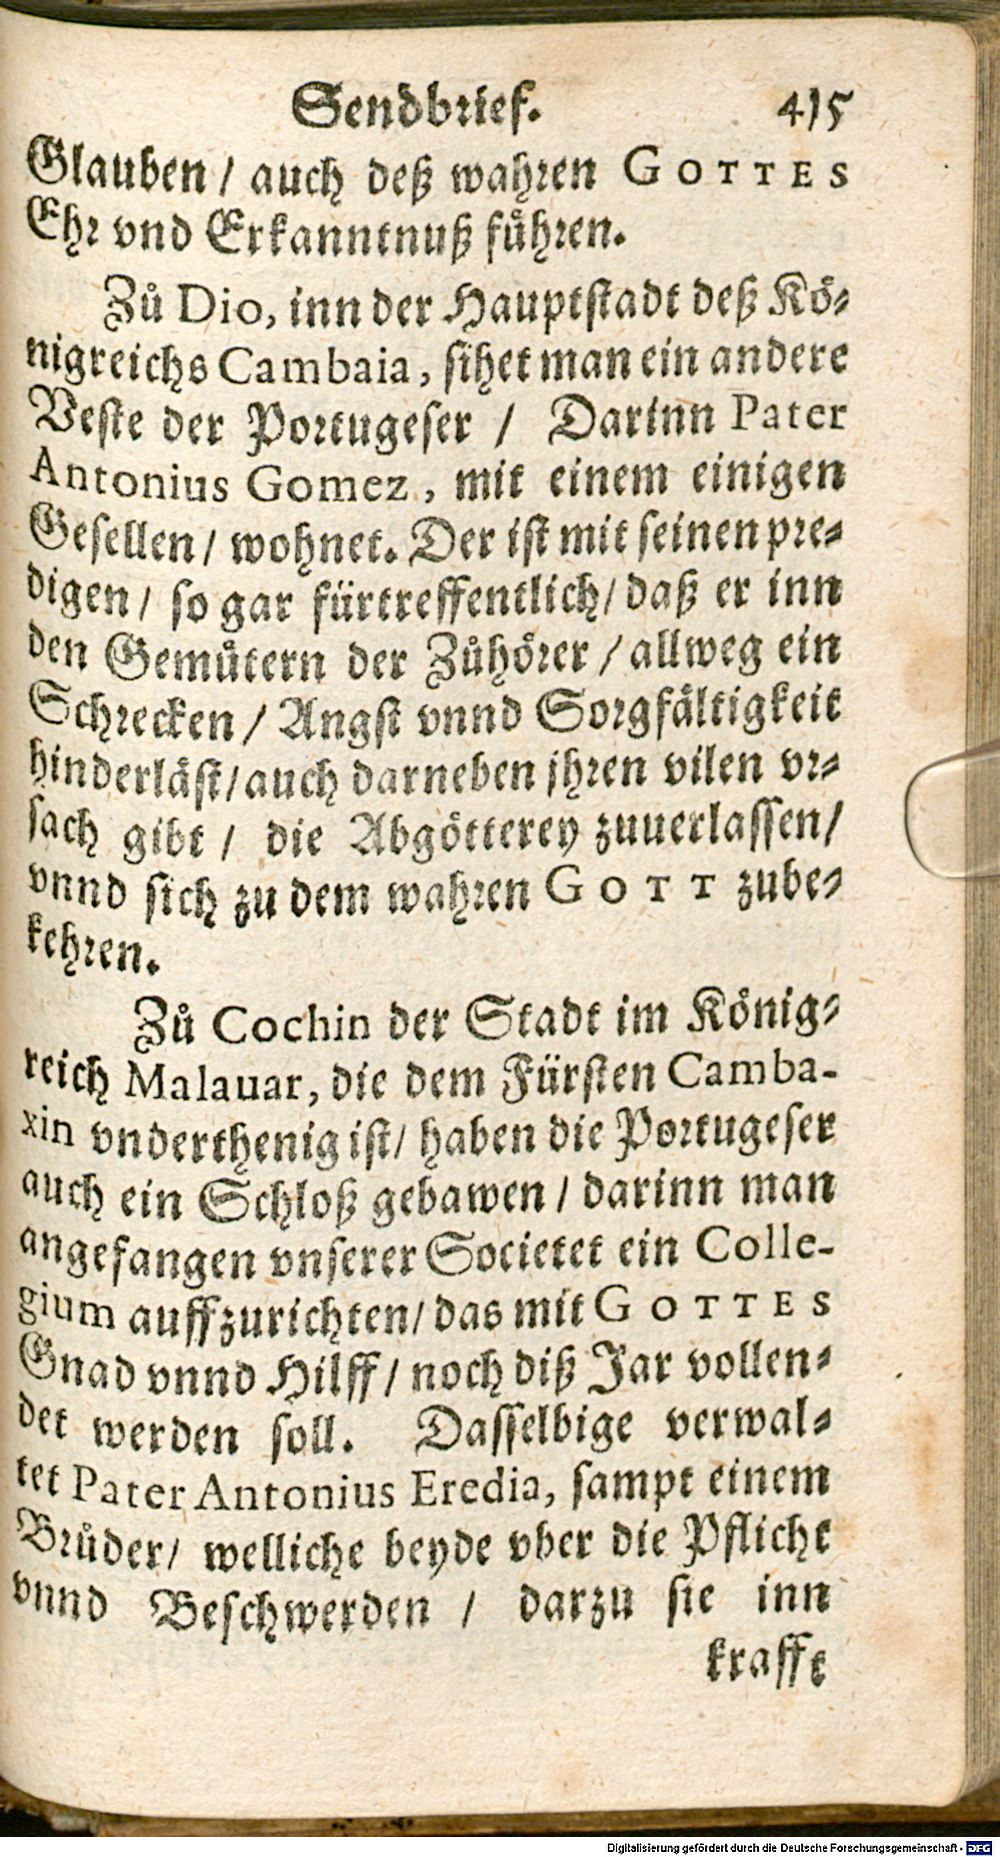 Sendbrief. 415
Glauben / auch deß wahren GOTTES
Ehr vnd Erkanntnuß fuͤhren.
Zuͦ Dio, inn der Hauptstadt deß Koͤ⸗
nigreichs Cambaia, sihet man ein andere
Veste der Portugeser / Darinn Pater
Antonius Gomez, mit einem einigen
Gesellen / wohnet. Der ist mit seinen pre⸗
digen / so gar fürtreffentlich / daß er inn
den Gemuͤtern der Zuͦhoͤrer / allweg ein
Schrecken / Angst vnnd Sorgfaͤltigkeit
hinderlaͤst / auch darneben jhren vilen vr⸗
sach gibt / die Abgoͤtterey zuuerlassen /
vnnd sich zu dem wahren GOTT zube⸗
kehren.
Zuͦ Cochin der Stadt im Koͤnig⸗
reich Malauar, die dem Fürsten Camba-
xin vnderthenig ist / haben die Portugeser
auch ein Schloß gebawen / darinn man
angefangen vnserer Societet ein Colle-
gium auffzurichten / das mit GOTTES
Gnad vnnd Hilff / noch diß Jar vollen⸗
det werden soll. Dasselbige verwal⸗
tet Pater Antonius Eredia, sampt einem
Bruͦder / welliche beyde vber die Pflicht
vnnd Beschwerden / darzu sie inn
krafft
Digitalisierung gefördert durch die Deutsche Forschungsgemeinschaft - DFG